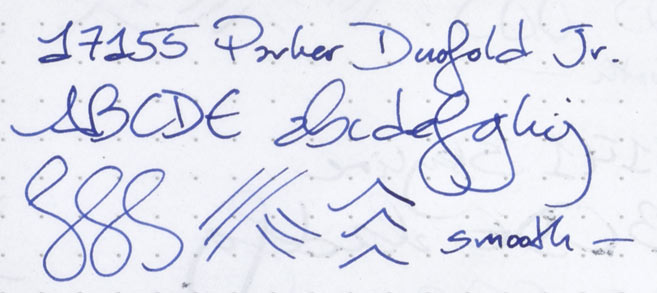 17155 Parker Duofold Jr.
ABCDE abcdefghij
smooth –